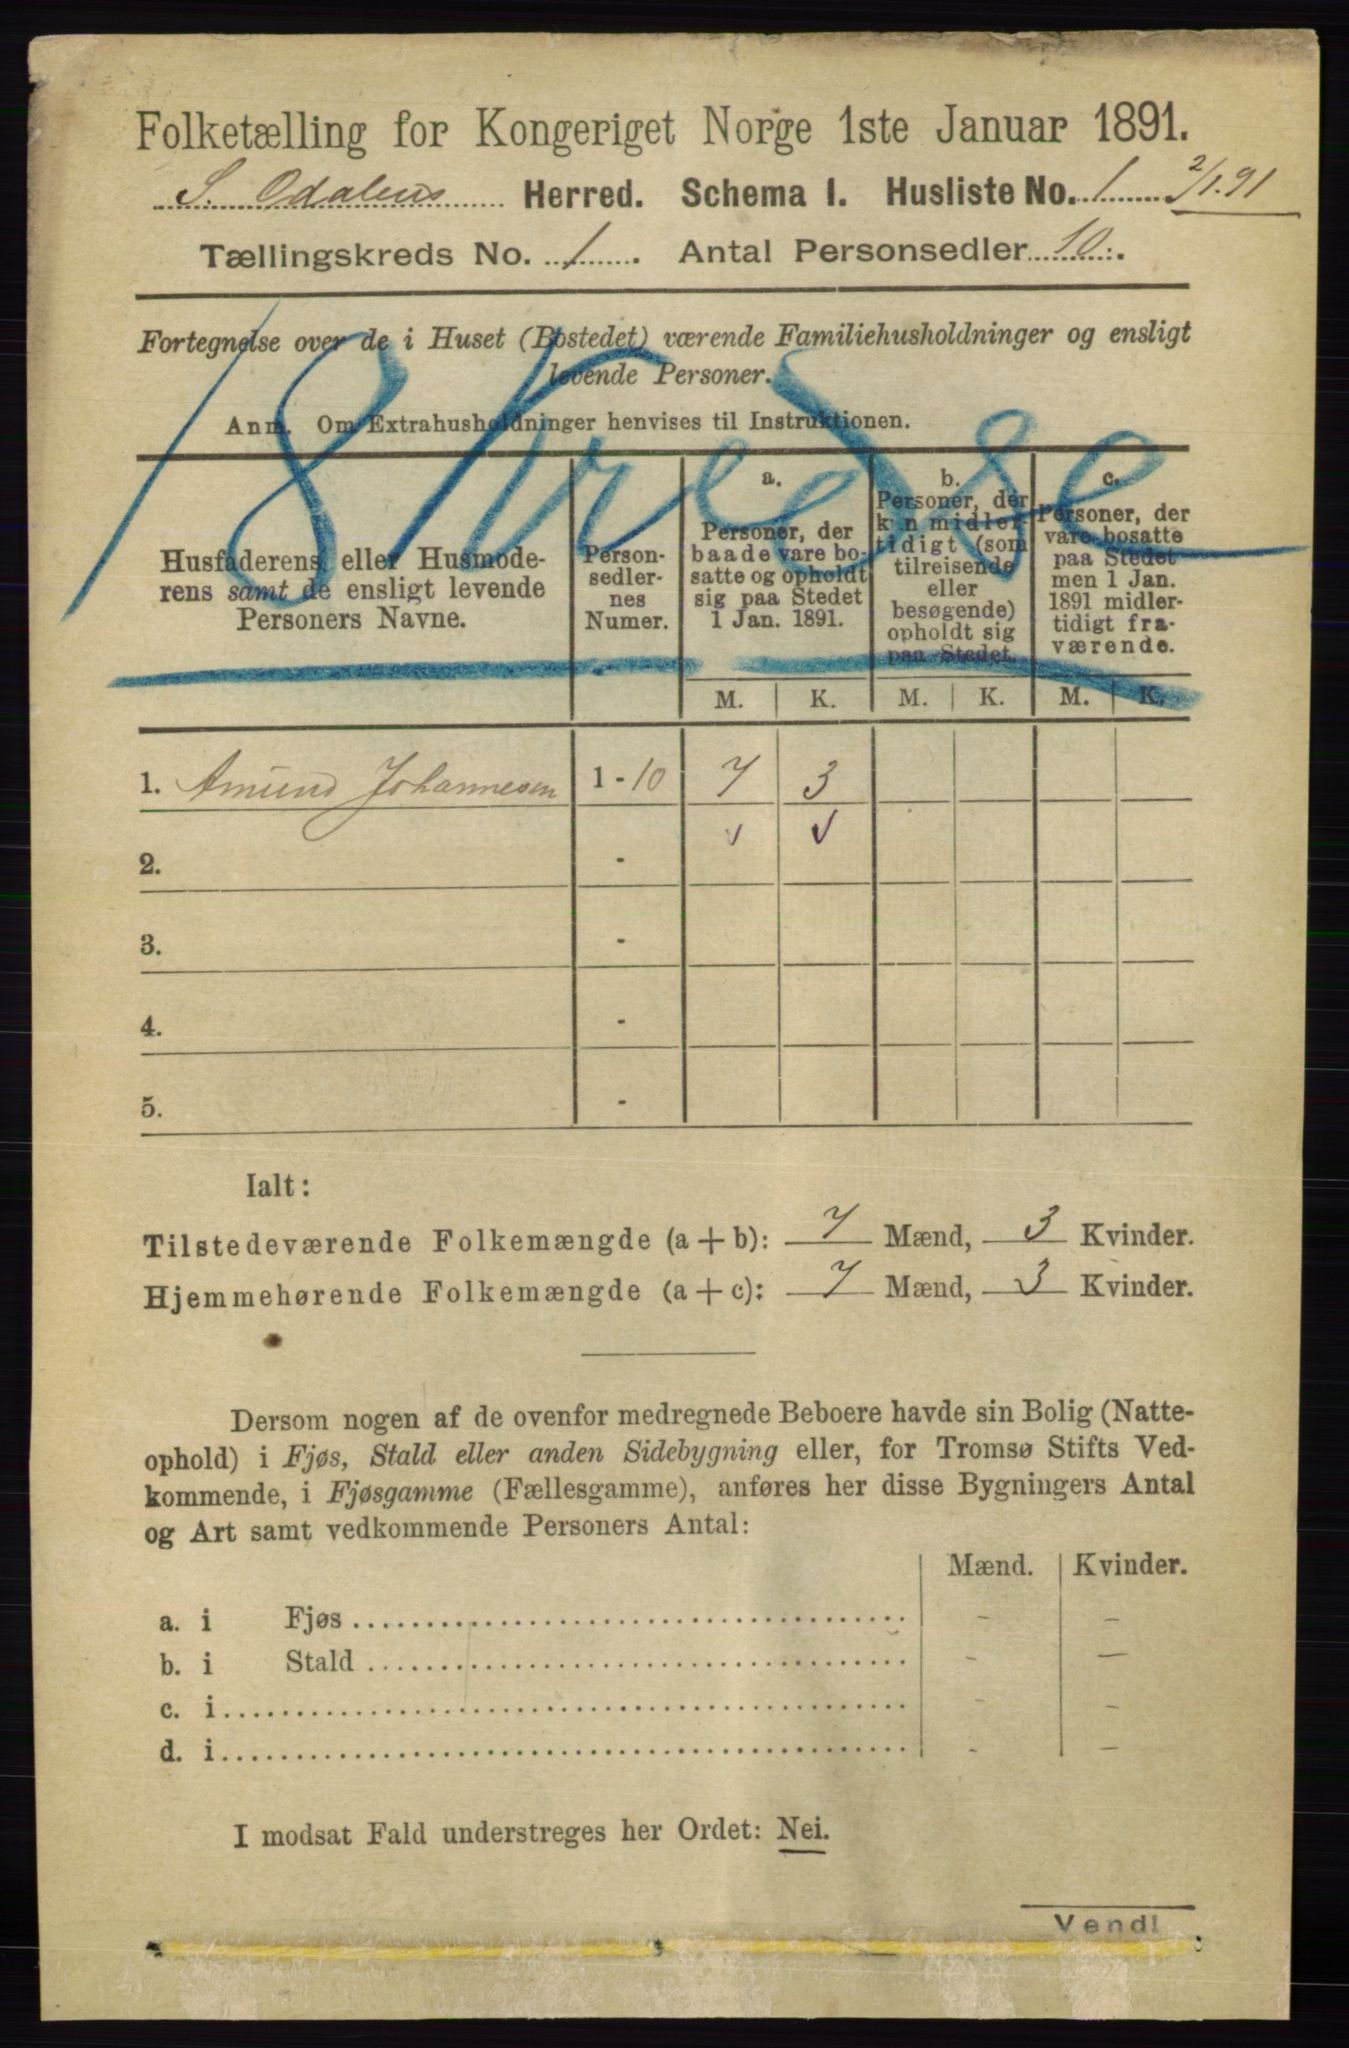 Folketælling for Kongeriget Norge 1ste Januar 1891.
S. Odalens Herred. Schema I. Husliste No. 1 2/1.91
Tællingskreds No. 1. Antal Personsedler 10.
1ste Kreds
Fortegnelse over de i Huset (Bostedet) værende Familiehusholdninger og ensligt
levende Personer.
Anm. Om Extrahusholdninger henvises til Instruktionen.
Husfaderens eller Husmode-
rens samt de ensligt levende
Personers Navne.
Person-
sedler-
nes
Numer.
a.
Personer, der
baade vare bo-
satte og opholdt
sig paa Stedet
1 Jan. 1891.
b.
Personer, der
kun midler-
tidigt (som
tilreisende
eller
besøgende)
opholdt sig
paa Stedet.
c.
Personer, der
vare bosatte
paa Stedet
men 1 Jan.
1891 midler-
tidigt fra-
værende.
M. K. M. K. M. K.
1. Amund Johannesen 1 - 10 7 3
2. -
3. -
4. -
5. -
Ialt:
Tilstedeværende Folkemængde (a + b): 7 Mænd, 3 Kvinder.
Hjemmehørende Folkemængde (a + c): 7 Mænd, 3 Kvinder.
Dersom nogen af de ovenfor medregnede Beboere havde sin Bolig (Natte-
ophold) i Fjøs, Stald eller anden Sidebygning eller, for Tromsø Stifts Ved-
kommende, i Fjøsgamme (Fællesgamme), anføres her disse Bygningers Antal
og Art samt vedkommende Personers Antal:
Mænd. Kvinder.
a. i Fjøs - -
b. i Stald - -
c. i - -
d. i - -
I modsat Fald understreges her Ordet: Nei.
Vend!